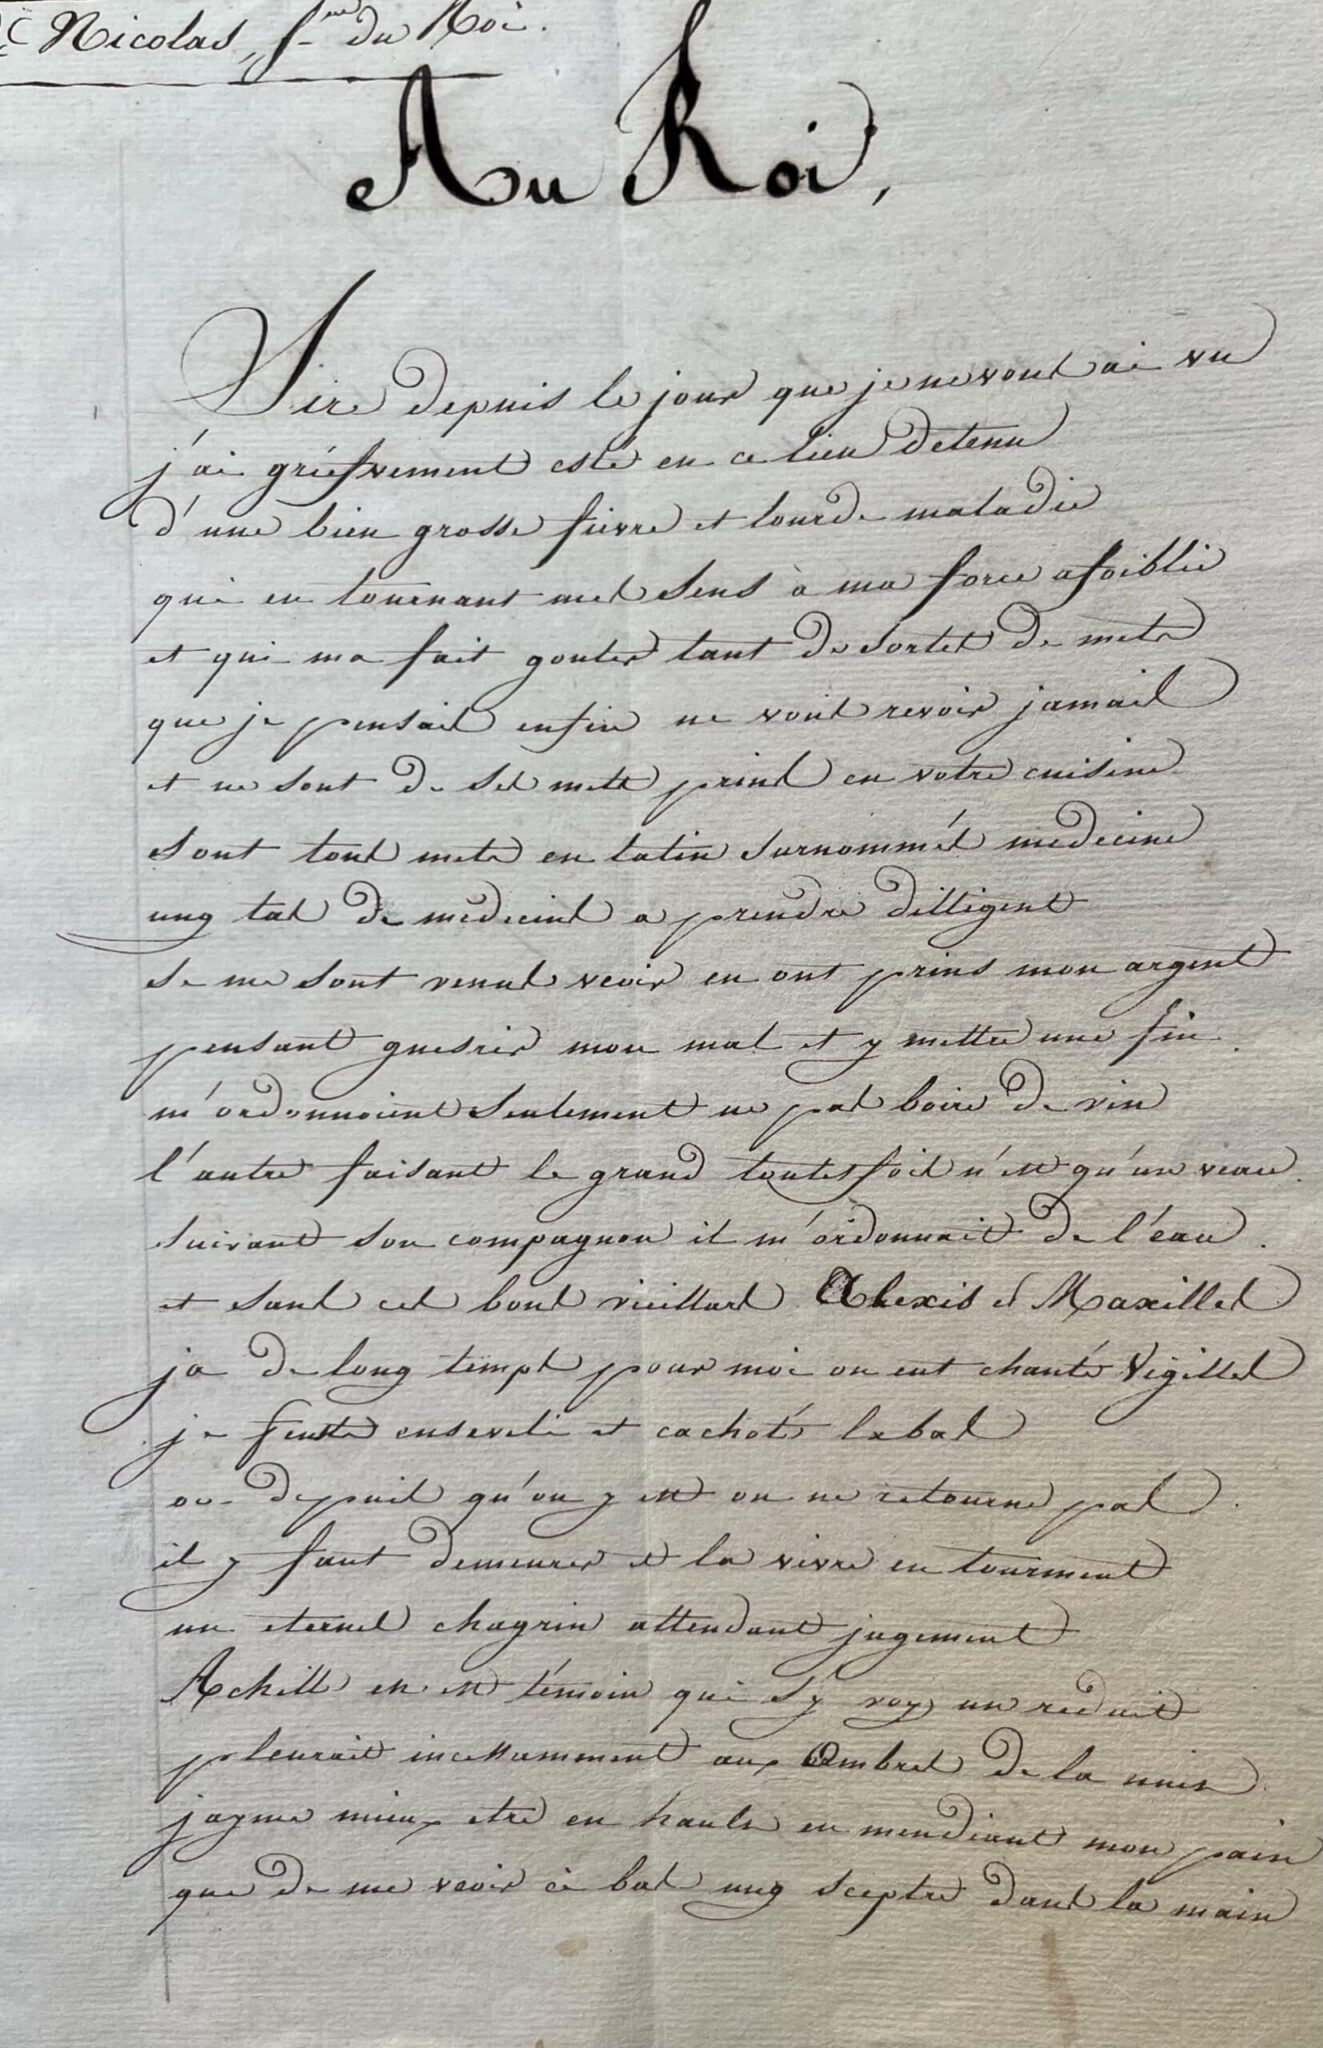 Nicolas, S.me du Roi.
Au Roi,
Sire depuis le jour que je ne vous ai vu
j'ai griefvement esté en ce lieu detenu
d'une bien grosse fievre et lourde maladie
qui en tournant mes sens à ma force afoiblie
et qui ma fait gouter tant de sortes de mets
que je pensais enfin ne vous revoir jamais
et ne sont de ses mets prins en votre cuisine
sont tous mets en latin surnommés medecine
ung tas de medecins a prendre dilligents
se me sont venus veoir en ont prins mon argent
pensant guesrir mon mal et y mettre une fin
m'ordonnoient seulement ne pas boire de vin
l'autre faisant le grand toutesfois n'est qu'un veau
suivant son compagnon il m'ordonnait de l'eau.
et sans ces bons vieillars Alexis et Maxilles
ja de long temps pour moi on eut chanté Vigilles
je feusse enseveli et caché labas
ou depuis qu'on y est on ne retourne pas.
il y faut demeurer et la vivre en tourment
un eternel chagrin attendant jugement
Achill en est témoin qui s'y voy un reduit
pleurait incessamment aux Ombres de la nuis
jayme mieux etre en hault en mendiant mon pain
que de me veoir ci bas ung sceptre dans la main